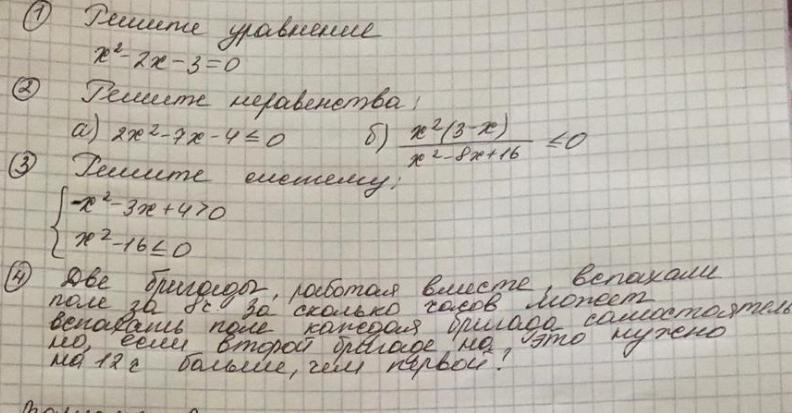 ① Решите уравнение
x²-2x-3=0
② Решите неравенства:
а) 2x²-7x-4≤0 б) x²(3-x)/x²-8x+16 ≤0
③ Решите систему:
{-x²-3x+4>0
x²-16≤0
④ Две бригады, работая вместе, вспахали
поле за 8ч. За сколько часов может
вспахать поле каждая бригада самостоятель
но, если второй бригаде на это нужно
на 12ч больше, чем первой?